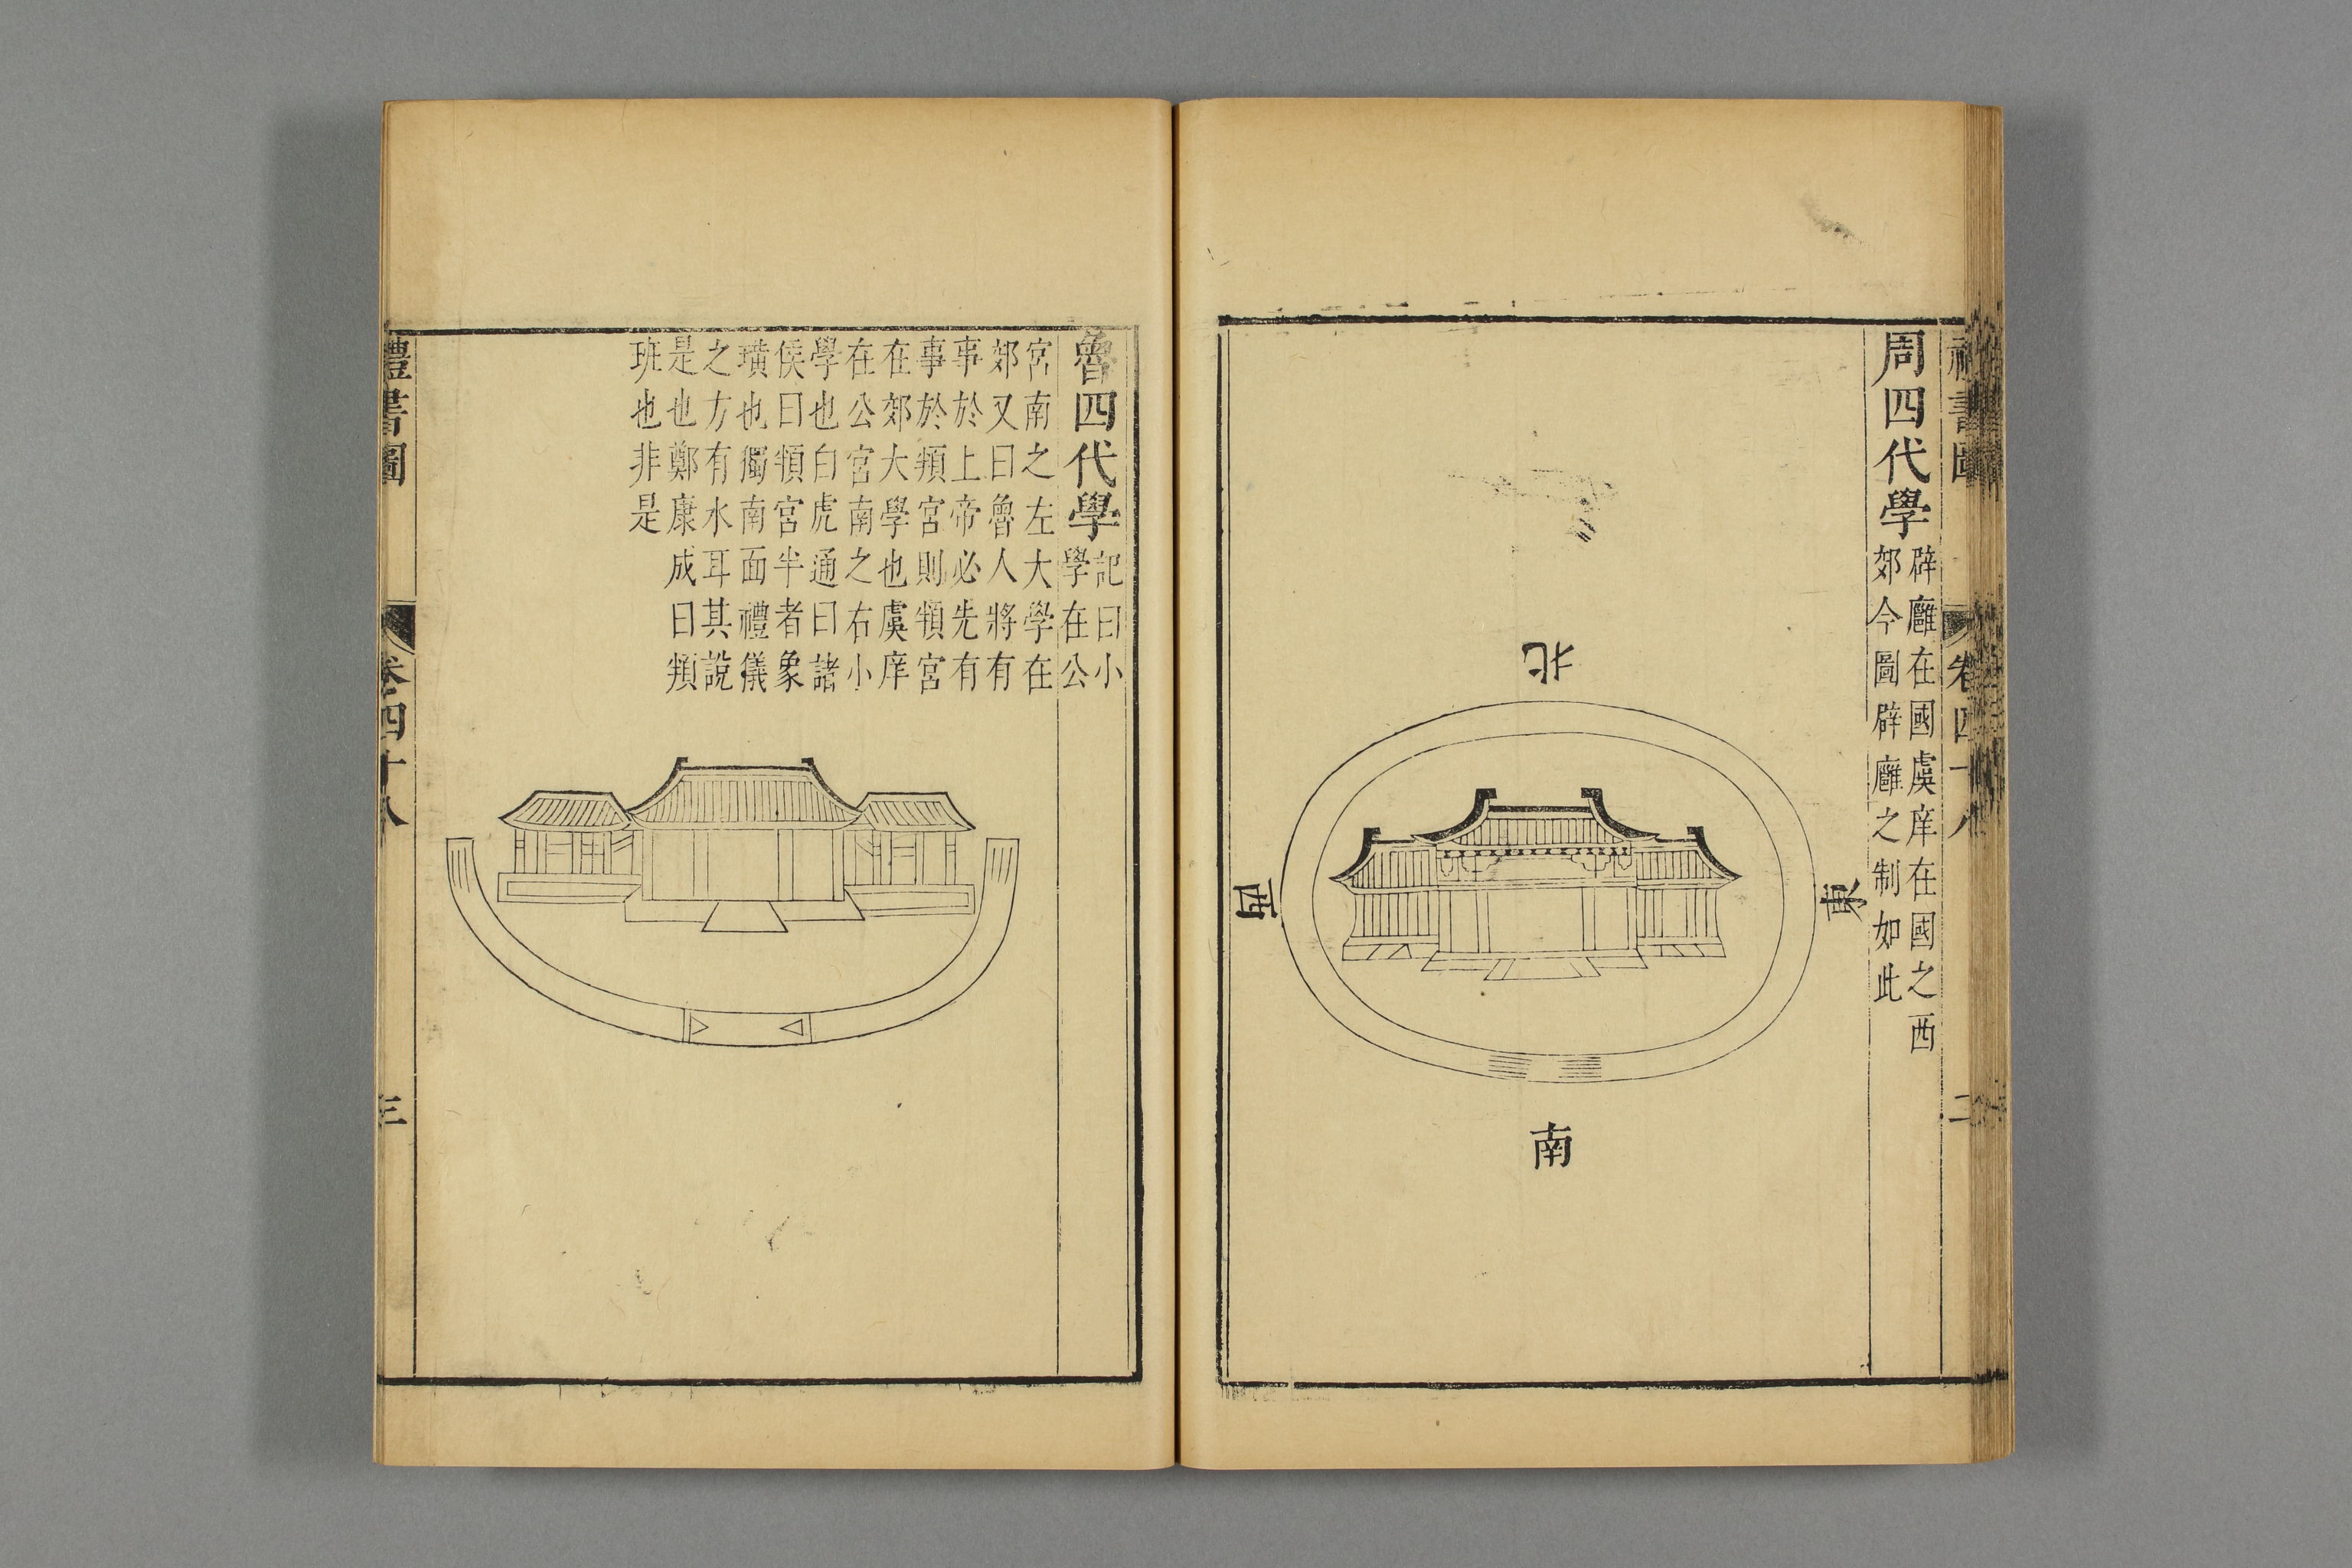 禮書圖 卷四十八 二
周四代學
辟廱在國虞庠在國之西
郊今圖辟廱之制如此
北
東
西
南
魯四代學
記曰小
學在公
宮南之左大學在
郊又曰魯人將有
事於上帝必先有
事於頖宮則頖宮
在郊大學也虞庠
在公宮南之右小
學也白虎通曰諸
侯曰頖宮半者象
璜也獨南面禮儀
之方有水耳其說
是也鄭康成曰頖
班也非是
禮書圖 卷四十八 三